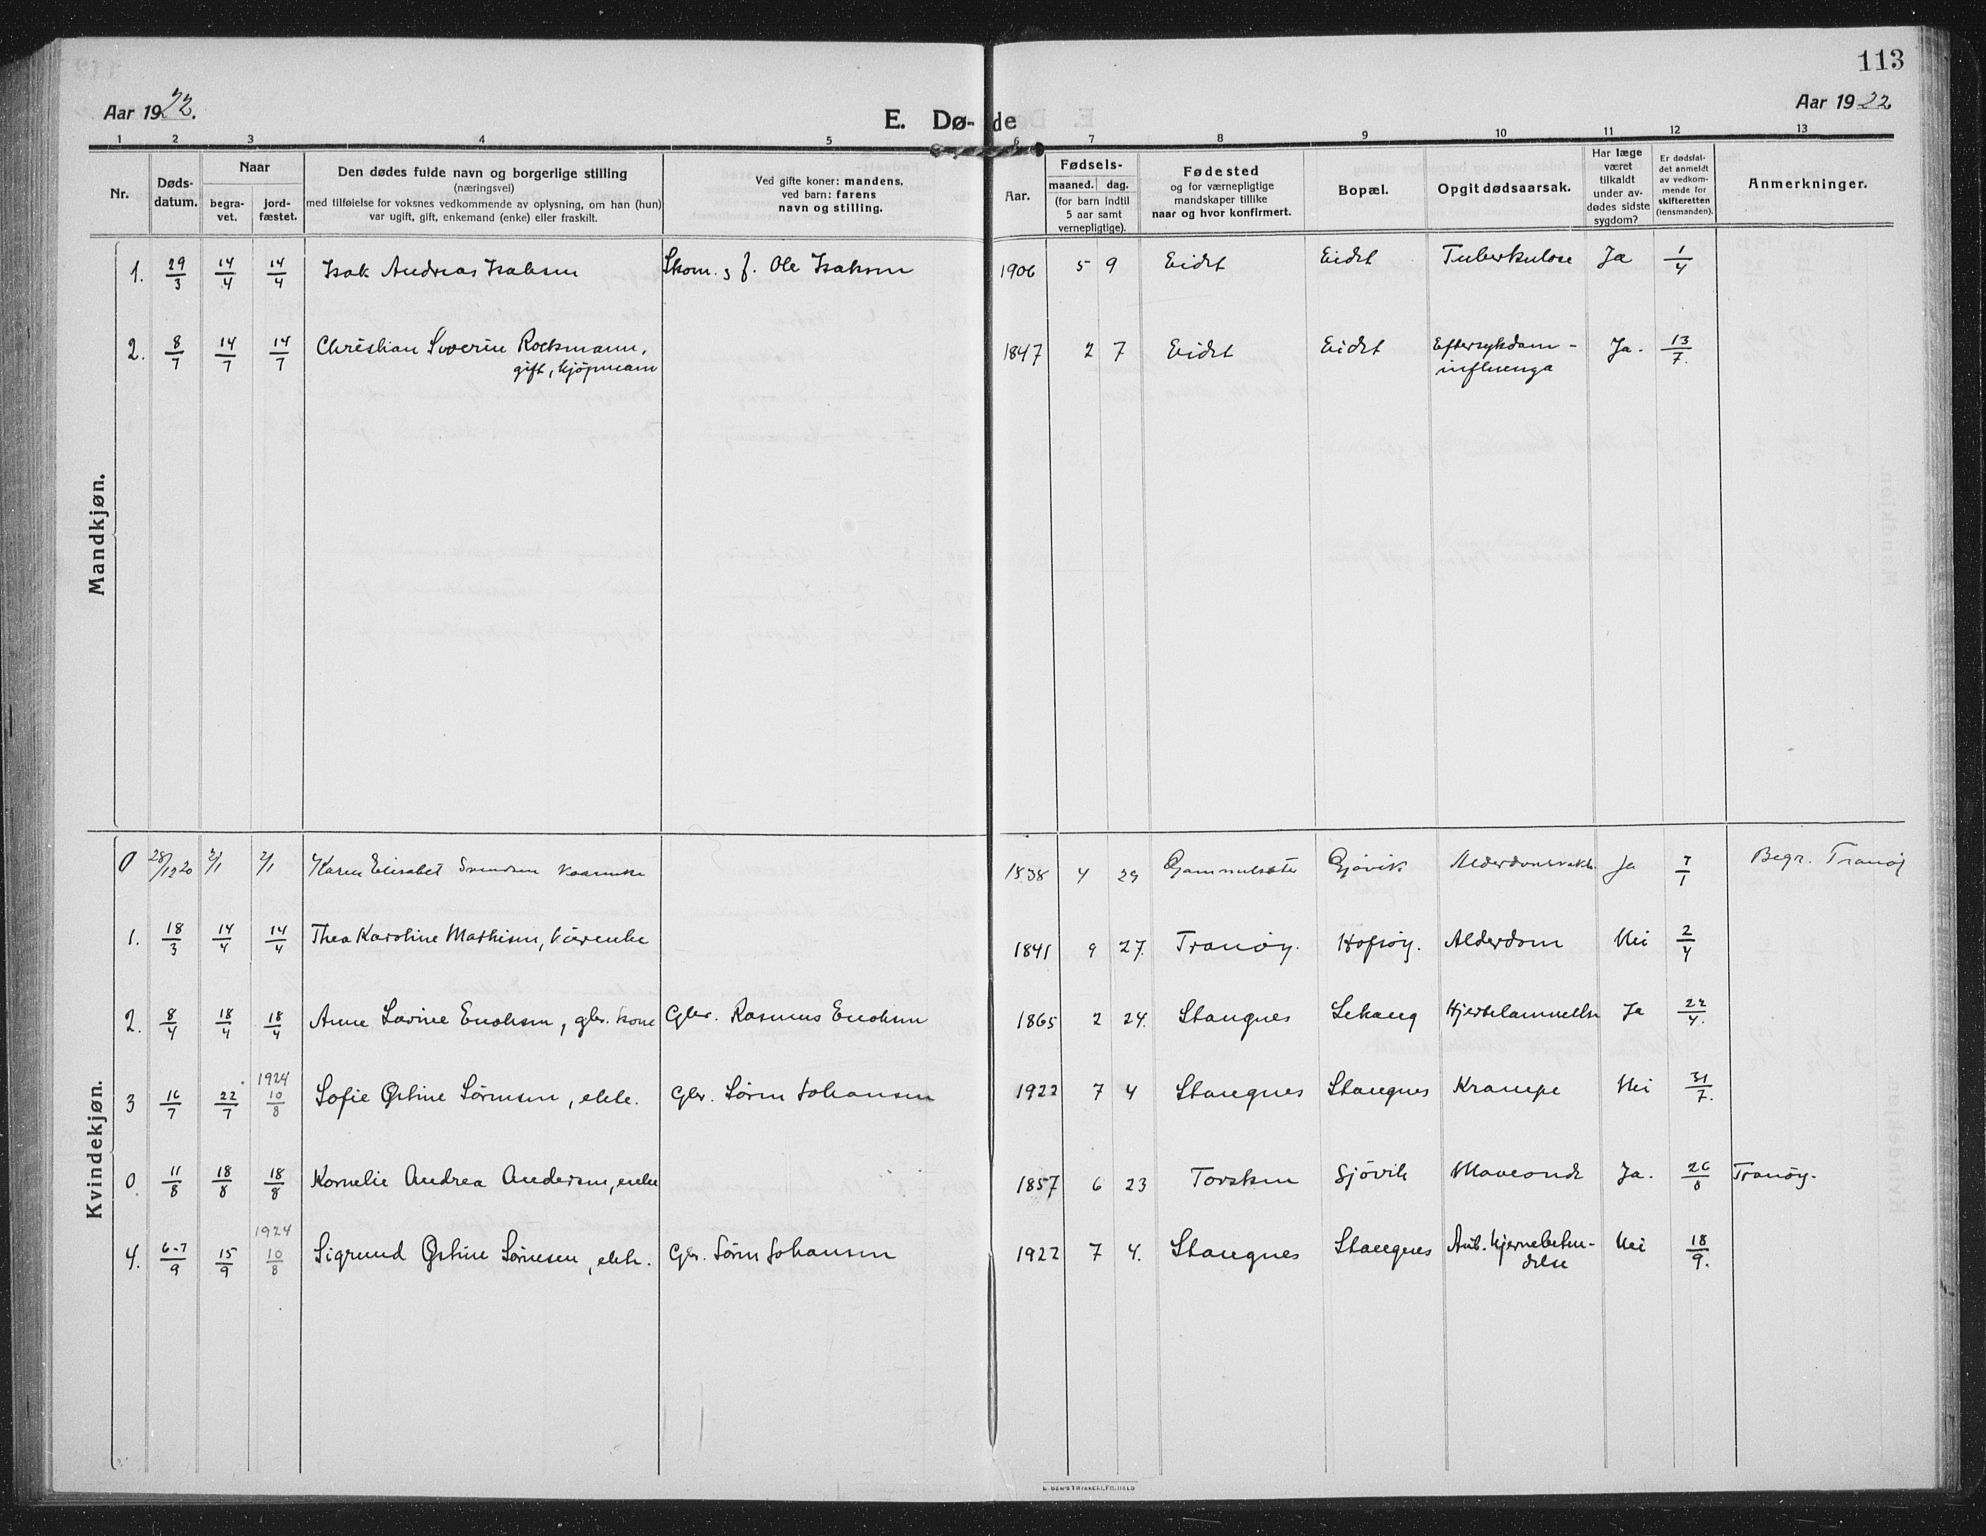 113
Aar 1922.
Aar 1922
E. Dø- de
1 2 3 4 5 6 7 8 9 10 11 12 13
Nr.
Døds-
datum.
Naar
begra-
vet.
jord-
fæstet.
Den dødes fulde navn og borgerlige stilling
(næringsvei)
med tilføielse for voksnes vedkommende av oplysning, om han (hun)
var ugift, gift, enkemand (enke) eller fraskilt.
Ved gifte koner: mandens,
ved barn: farens
navn og stilling.
Aar.
Fødsels-
maaned. dag.
(for barn indtil
5 aar samt
vernepligtige).
Fødested
og for værnepligtige
mandskaper tillike
naar og hvor konfirmert.
Bopæl.
Opgit dødsaarsak.
Har læge
været
tilkaldt
under av-
dødes sidste
sygdom?
Er dødsfal-
det anmeldt
av vedkom-
mende for
skifteretten
(lensmanden).
Anmerkninger.
Mandkjøn.
1. 29/3 14/4 14/4 Isak Andreas Isaksen Skom. g f. Ole Isaksen 1906 5 9 Eidet Eidet Tuberkulose Ja 1/4
2. 8/7 14/7 14/7 Christian Severin Rockmann, 1847 2 7 Eidet Eidet Eftersykdom - Ja. 13/7.
gift, kjøpmann influenza
Kvindekjøn.
0 28/12 20 2/1 2/1 Karen Elisabet Svendsen 1838 4 29 Gammelsæter Gjøvik Alderdomsvakh. Ja 7/1 Begr. Tranøy
1. 18/3 14/4 14/4 Thea Karoline Mathisen, 1841 9 27. Tranøy. Hofsøy. Alderdom Nei 2/4
2. 8/4 18/4 18/4 Anne Lovine Enoksen, gbr. kone Gbr. Rasmus Enoksen 1865 2 24. Stangnes Lekang Hjertelammelse Ja 22/4.
1924
3 16/7 22/7 10/8 Sofie Østine Sørensen, ekte. Gbr. Sørn Johansen 1922 7 4 Stangnes Stangnes Krampe Nei 31/7.
0. 11/8 18/8 18/8 Kornelie Andrea Andersen, enke 1857 6 23 Torsken Gjövik Maveonde Ja. 26/8 Tranöy.
1924
4. 6-7/9 15/9 10/8 Sigrund Østine Sørnesen, ekte. Gbr. Sørn Johansen 1922 7 4. Stangnes Stangnes Ant. hjernebeten- Nei 18/9.
delse